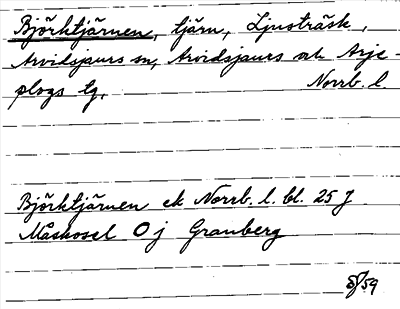 Björktjärnen, tjärn, Ljusträsk,
Arvidsjaurs sn, Arvidsjaurs och Arje-
plogs tg. Norrb. l.
Björktjärnen ek Norrb. l. bl. 25 J
Måskosel O j Granberg
59